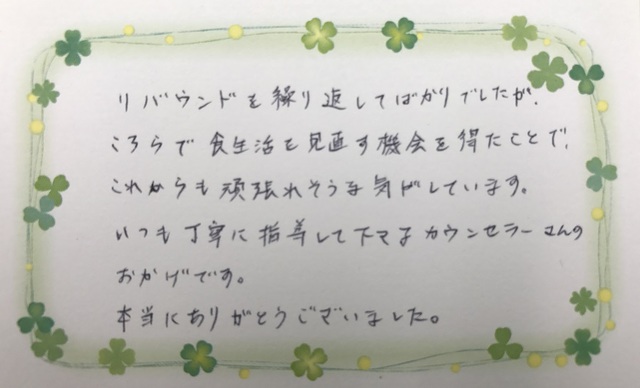 リバウンドを繰り返してばかりでしたが、
ころらで食生活を見直す機会を得たことで、
これからも頑張れそうな気がしています。
いつも丁寧に指導して下さるカウンセラーさんの
おかげです。
本当にありがとうございました。